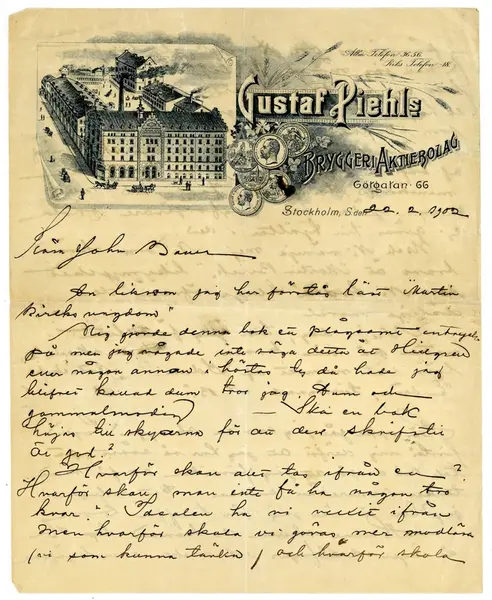 Allm. Telefon 36 56.
Riks Telefon 18
Gustaf Piehls
Bryggeri Aktiebolag
Götgatan 66
Stockholm, S. den 22. 2. 1902
Käre John Bauer
Du liksom jag har förstås läst "Martin
Bircks ungdom"
Mig gjorde denna bok ett plågsamt intryck
på men jag vågade inte säga detta åt
eller någon annan i höstas ty då hade jag
blifvit kallad dum tror jag. Dum och
gammalmodig — Ska en bok
höjas till skyarna för att den skrifstil
är god?
"Hvarför skall allt tas ifrån en?
Hvarför skall man inte få ha någon tro
kvar." Idealen ha vi ifrån
men hvarför skola vi göras mer modlösa
(vi som kunna tänka) och hvarför skola